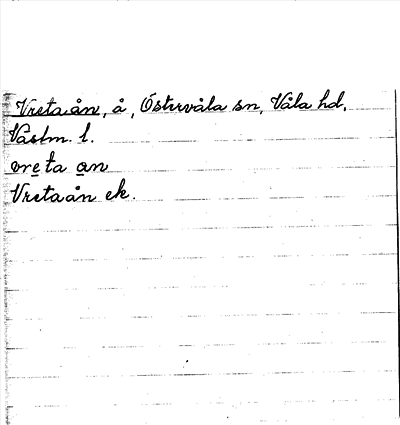 Vretaån, å, Östervåla sn, Våla hd,
Västm. l.
vreta an
Vretaån ek.